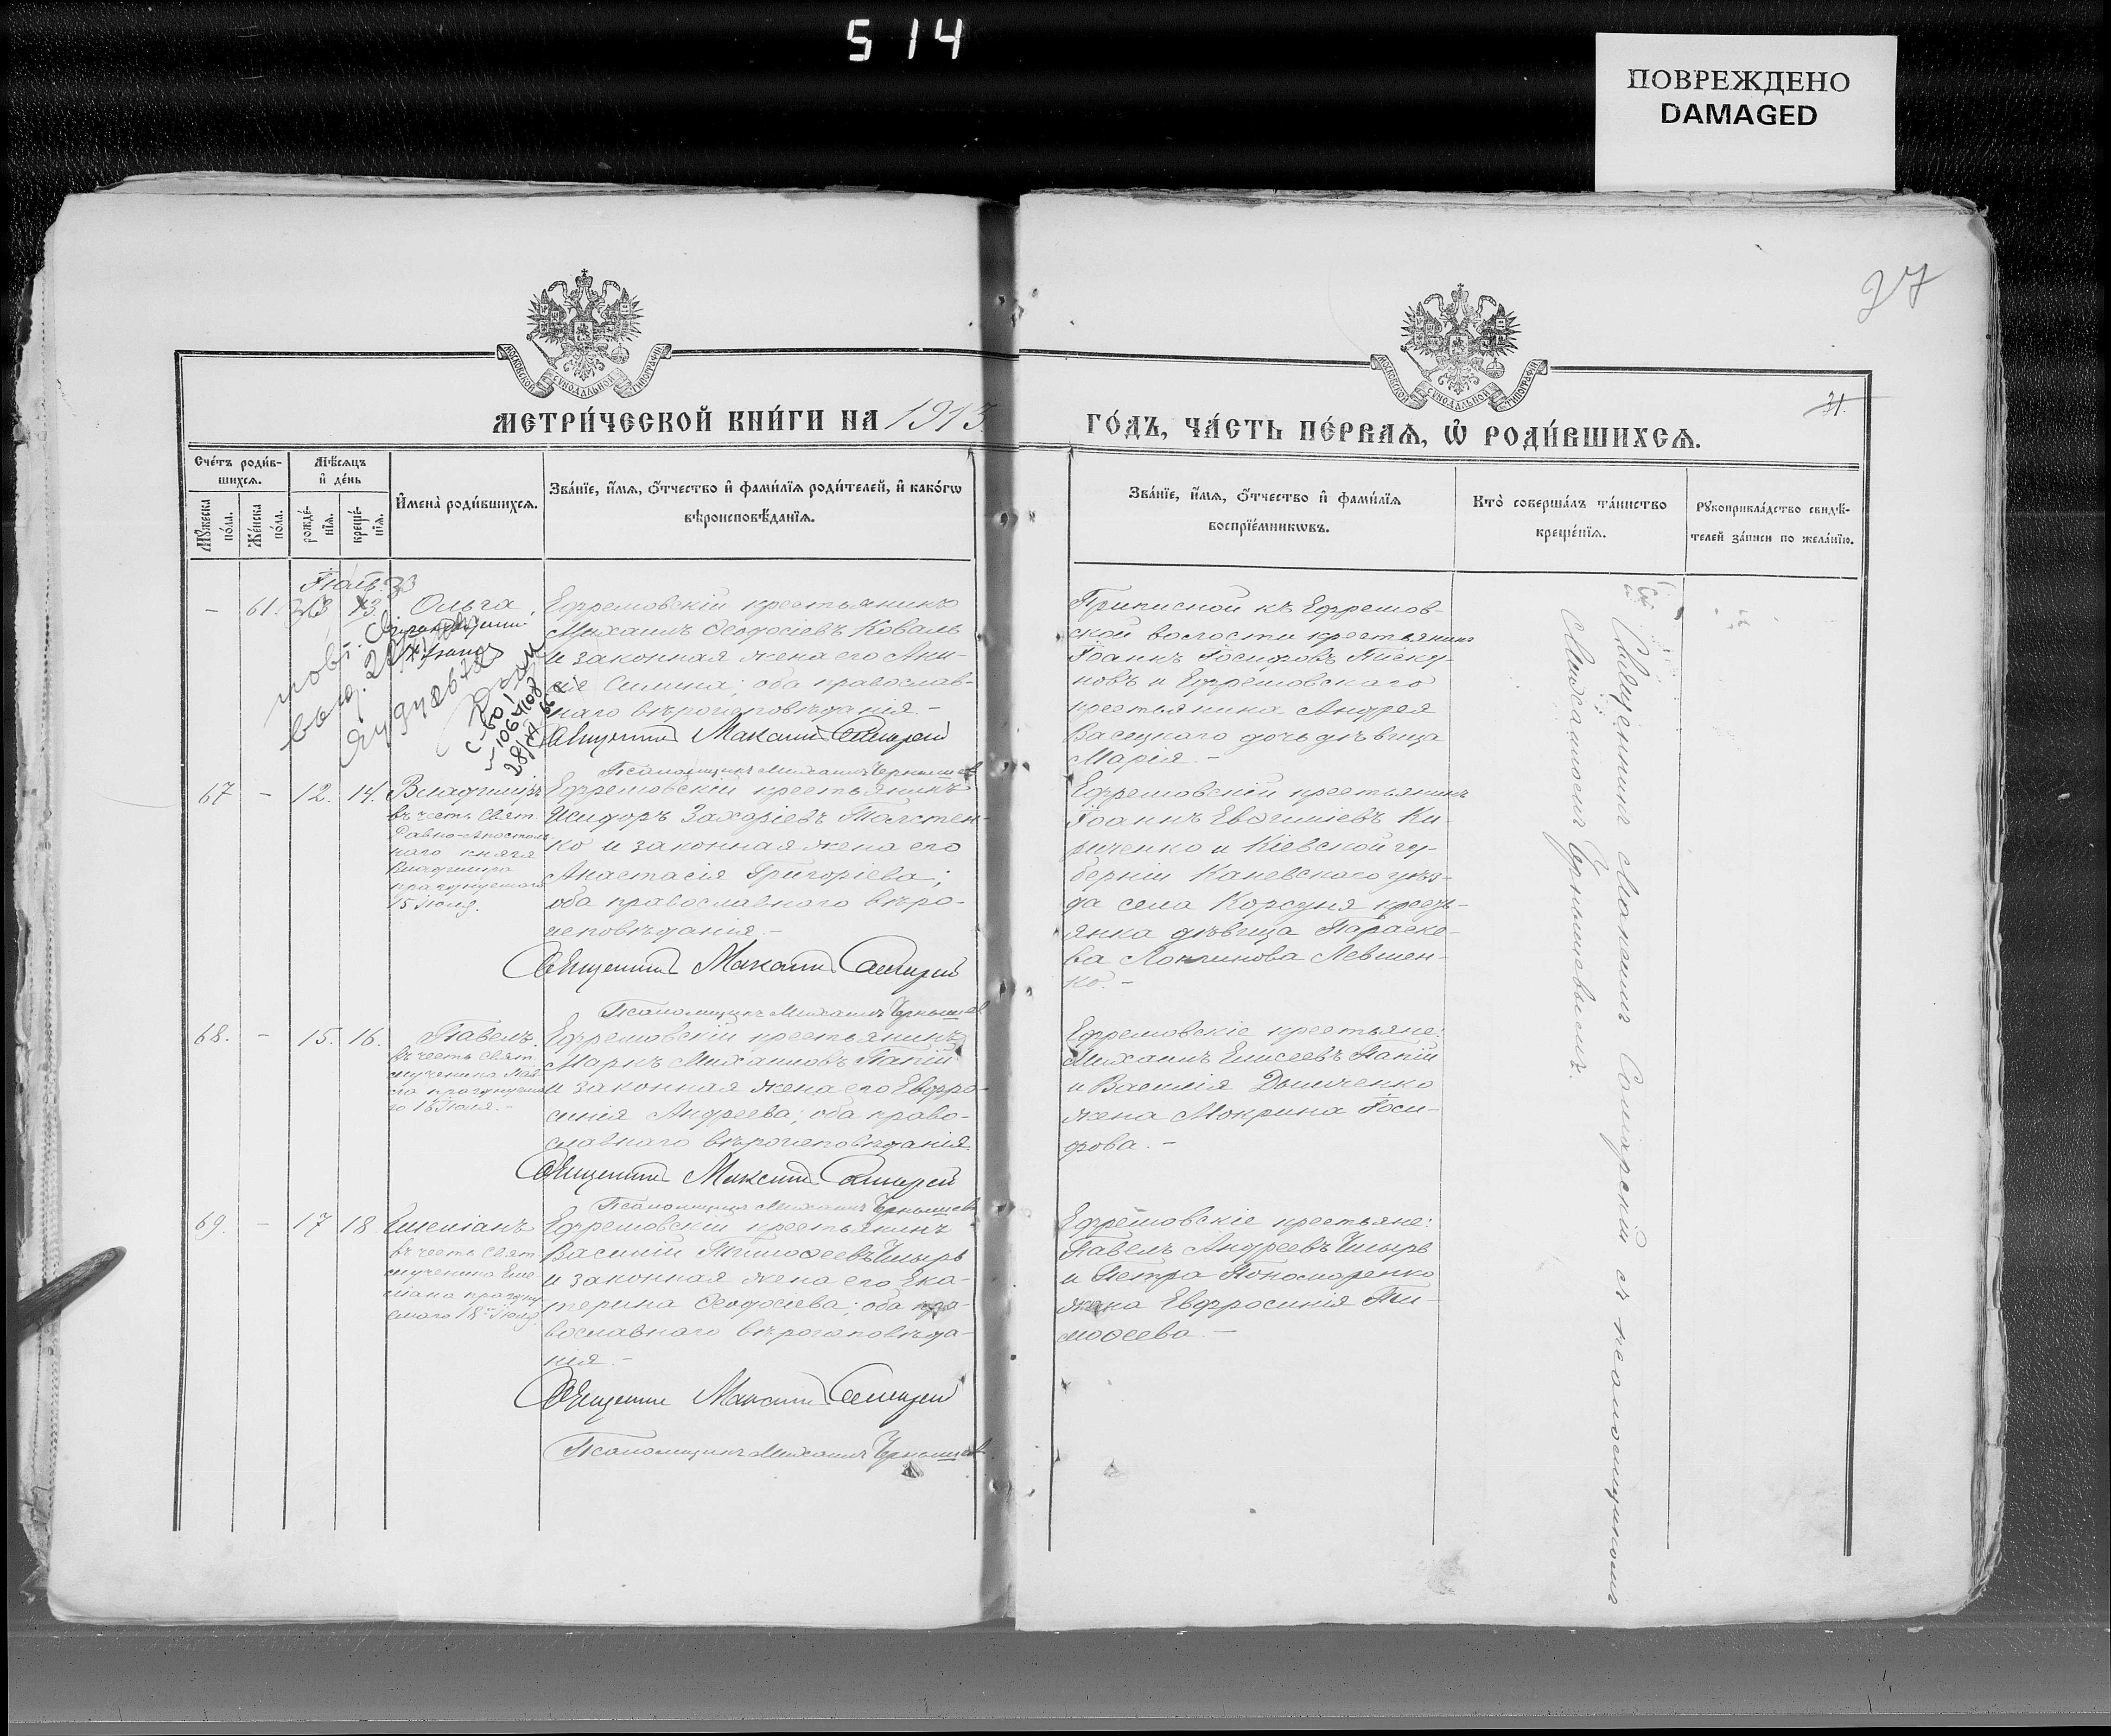 514
ПОВРЕЖДЕНО
DAMAGED
27
МОСКОВСКОЙ СѴНОДАЛЬНОЙ ТИПОГРАФІИ
МОСКОВСКОЙ СѴНОДАЛЬНОЙ ТИПОГРАФІИ
31.
МЕТРИ́ЧЕСКОЙ КНИ́ГИ НА 1913
ГО́ДЪ, ЧА́СТЬ ПЕ́РВАѦ, Ѽ РОДИ́ВШИХСѦ.
Сче́тъ роди́в-
шихсѧ.
Мꙋ́жеска по́ла.
Же́нска по́ла.
Мѣ́сѧцъ
и҆ де́нь
рожде́-
нїѧ.
креще́-
нїѧ.
И҆мена̀ роди́вшихсѧ.
Зва́нїе, и҆́мѧ, ѻ҆́тчество и҆ фами́лїѧ роди́телей, и҆ како́гѡ
вѣроисповѣ́данїѧ.
Зва́нїе, и҆́мѧ, ѻ҆́тчество и҆ фами́лїѧ
воспрїе́мникѡвъ.
Кто̀ соверша́лъ та́инство
креще́нїѧ.
Рꙋкоприкла́дство свидѣ́-
телей за́писи по жела́нїю.
Іюль
– 61. 13 13. Ольга
Ефремовскій крестьянинъ
Михаилъ Ѳеодосіевъ Коваль
и законная жена его Ани-
сія Силина; оба православ-
наго вѣроисповѣданія. –
Священникъ Максимъ Самарскій
Псаломщикъ Михаилъ Чернышевъ
Приписной къ Ефремов-
ской волости крестьянинъ
Іоаннъ Іосифовъ Писку-
новъ и Ефремовскаго
крестьянина Андрея
Васецкаго дочь дѣвица
Марія. –
67 – 12. 14. Владиміръ
въ честь Свят.
Равно-Апостоль-
наго князя
Владиміра
празднуемаго
15 Іюля.
Ефремовскій крестьянинъ
Исидоръ Захаріевъ Толстен-
ко и законная жена его
Анастасія Григоріева;
оба православнаго вѣро-
исповѣданія. –
Священникъ Максимъ Самарскій
Псаломщикъ Михаилъ Чернышевъ
Ефремовскій крестьянинъ
Іоаннъ Евѳиміевъ Ки-
риченко и Кіевской гу-
берніи Каневскаго уѣз-
да села Корсуня кресть-
янка дѣвица Параске-
ва Логинова Левшен-
ко. –
68. – 15. 16. Павелъ
въ честь Свят.
мученика Пав-
ла празднуема-
го 16 Іюля. –
Ефремовскій крестьянинъ
Маркъ Михаиловъ Папій
и законная жена его Евфро-
синія Андреева; оба право-
славнаго вѣроисповѣданія.
Священникъ Максимъ Самарскій
Псаломщикъ Михаилъ Чернышевъ
Ефремовскіе крестьяне:
Михаилъ Елисеевъ Папій
и Василія Дымченко
жена Мокрина Іоси-
фова. –
69. – 17 18 Емеліанъ
въ честь Свят.
мученика Еме-
ліана праздну-
емаго 18 Іюля.
Ефремовскій крестьянинъ
Василій Тимоѳеевъ Чмырь
и законная жена его Ека-
терина Ѳеодосіева; оба пра-
вославнаго вѣроисповѣда-
нія. –
Священникъ Максимъ Самарскій
Псаломщикъ Михаилъ Чернышевъ
Ефремовскіе крестьяне:
Павелъ Андреевъ Чмырь
и Петра Пономаренко
жена Евфросинія Ти-
моѳеева. –
Священникъ Максимъ Самарскій съ псаломщикомъ
Михаиломъ Чернышевымъ.